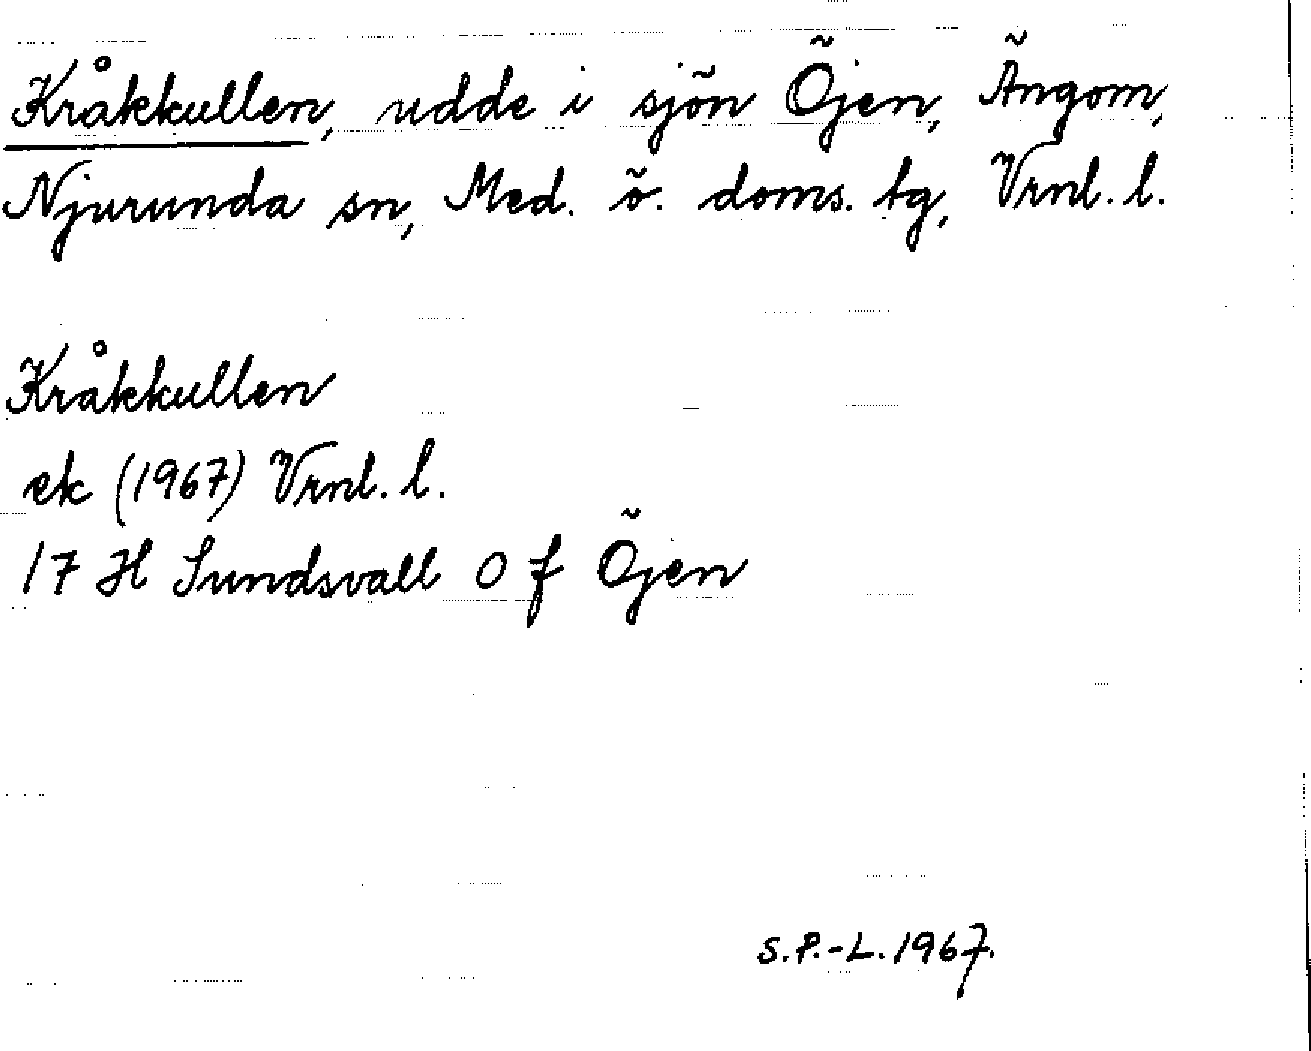 Kråkkullen, udde i sjön Öjen, Ängom,
Njurunda sn, Med. ö. doms. tg, Vrnl. l.
Kråkkullen
ek (1967) Vrnl. l.
17 H Sundsvall O f Öjen
S.P.-L. 1967.